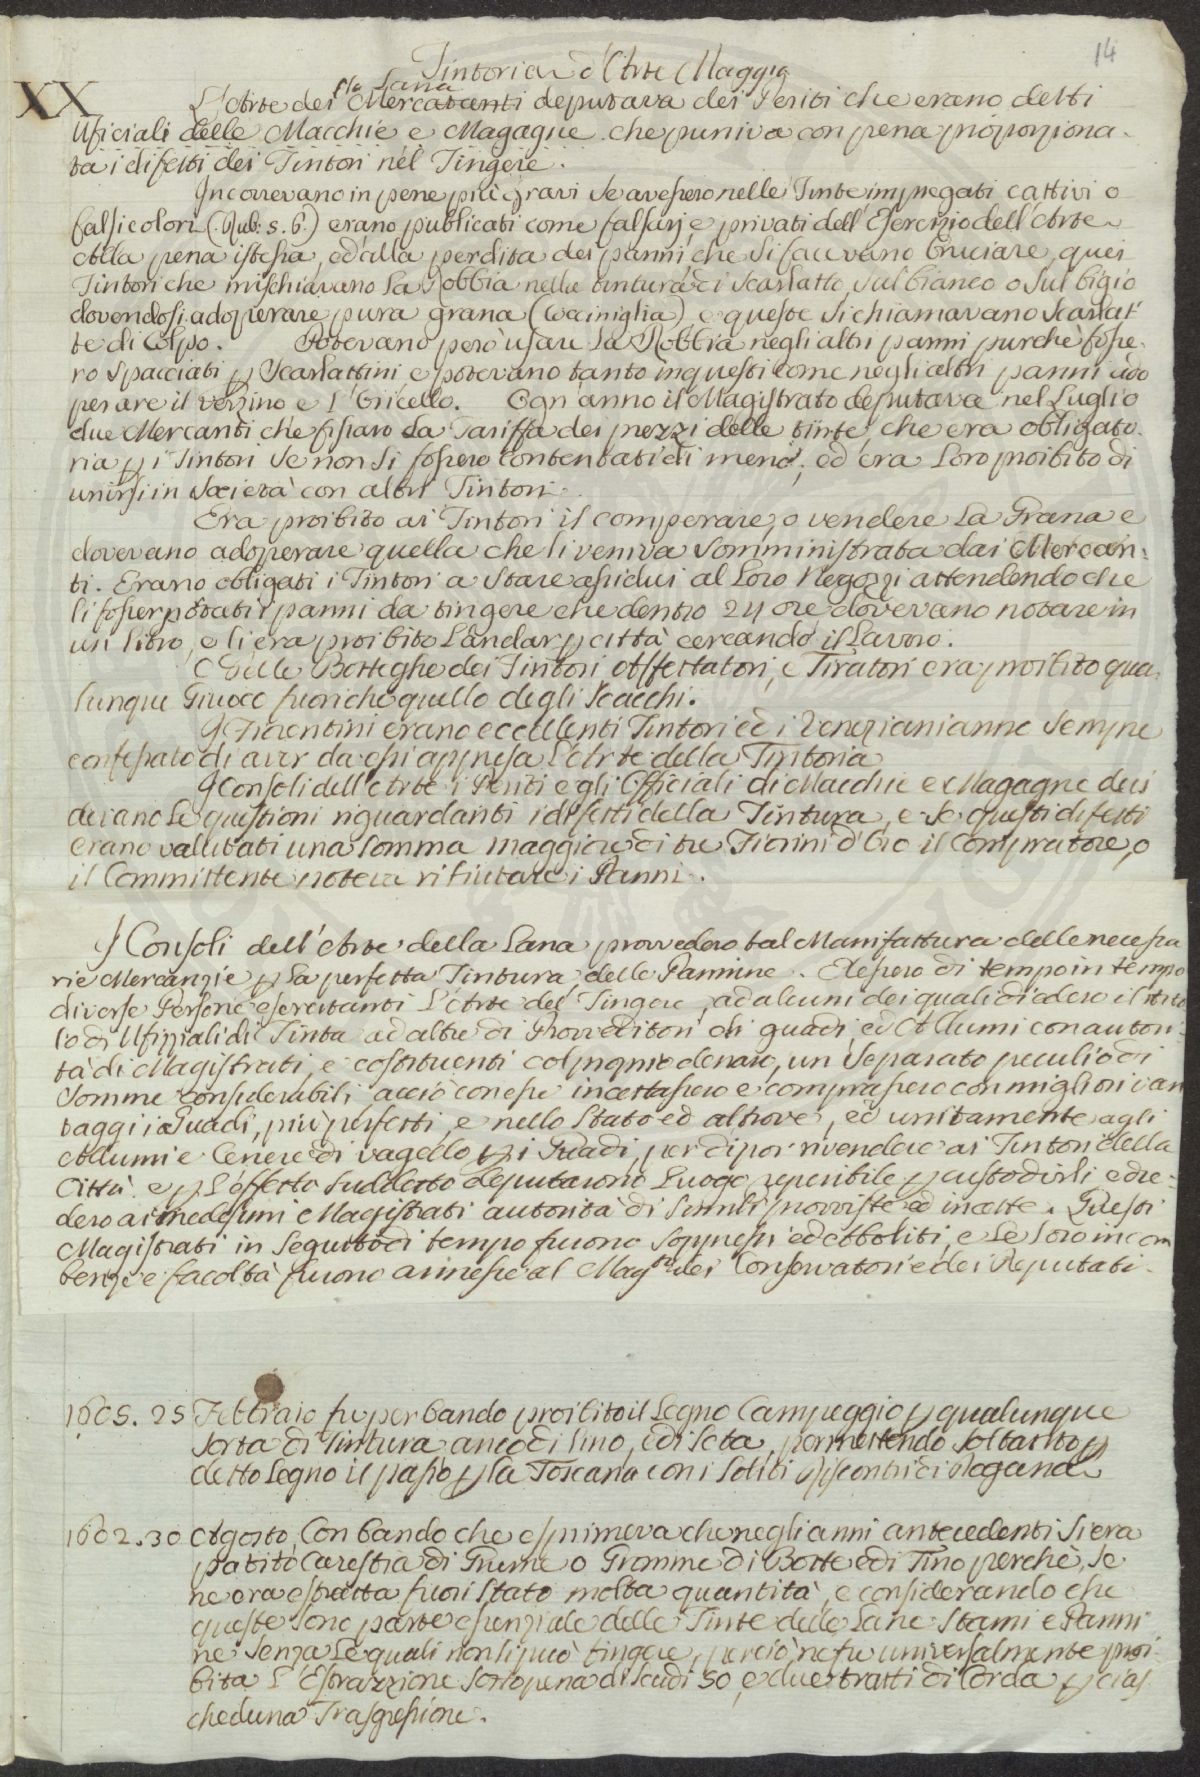 14
Tintoria d'Arte Maggio
XX
la Lana
L'Arte dei Mercatanti deputava dei Periti che erano detti
Uficiali delle Macchie e Magagne che puniva con pena proporziona-
ta i difetti dei Tintori nel Tingere.
Incorrevano in pene più gravi se avessero nelle Tinte impiegati cattivi o
falsi colori (Rub: s. 6.) erano publicati come falsarj, e privati dell'Esercizio dell'Arte
Alla pena istessa, ed alla perdita dei panni che si facevano bruciare, quei
Tintori che mischiavano la Robbia nella tintura di scarlatto sul bianco o sul bigio
dovendosi adoperare pura grana (Cociniglia) e queste si chiamavano Scarlat-
te di Colpo. Potevano però usare la Robbia negli altri panni purchè fosse-
ro spacciati p Scarlattini, e potevano tanto in questi come negli altri panni ado
perare il verzino e l'Oricello. Ogn'anno il Magistrato deputava nel Luglio
due Mercanti che fissavo la Tariffa dei prezzi delle tinte, che era obligato-
ria p i Tintori se non si fossero contentati di meno, ed era loro proibito di
unirsi in società con altri Tintori.
Era proibito ai Tintori il comperare, o vendere la Grana e
dovevano adoperare quella che li veniva somministrata dai Mercan-
ti. Erano obligati i Tintori a stare assidui al loro Negozzi attendendo che
li fosser portati i panni da tingere che dentro 24 ore dovevano notare in
un libro, e li era proibito l'andar p città cercando il Lavoro.
Nelle Botteghe dei Tintori Affettatori, e Tiratori era proibito qua-
lunque Giuoco fuori che quello degli Scacchi.
I Fiorentini erano eccellenti Tintori ed i Veneziani anno sempre
confessato di aver da essi appresa l'Arte della Tintoria
I Consoli dell'Arte i Periti e gli Officiali di Macchie e Magagne deci
devano le questioni riguardanti i difetti della Tintura, e se questi difetti
erano vallutati una somma maggiore di tre Fiorini d'Oro il Compratore, o
il Committente poteva rifiutare i Panni.
I Consoli dell'Arte della Lana provvedero tal Manifattura delle necessa
rie Mercanzie p la perfetta Tintura delle Pannine. Elessero di tempo in tempo
diverse Persone esercitanti l'Arte del Tingere, ad alcuni dei quali diedero il tito
lo di Ufiziali di Tinta ad altre di Provveditori di guadi, ed Allumi con autori-
tà di Magistrati, e costituenti col proprio denaro, un separato peculio di
somme considerabili acciò con esse incettassero e comprassero con migliori van
taggi i Guadi, più perfetti, e nello Stato ed altrove, ed unitamente agli
Allumi e Cenere di vagello p i Guadi, per dipoi rivendere ai Tintori della
Città e p l'effetto suddetto deputarono Luogo reperibile p custodirli e die-
dero ai medesimi Magistrati autorità di simili provviste ed incette. Questi
Magistrati in seguito di tempo furono soppressi ed Abboliti, e le loro incom
benze e facoltà furono annesse al Mag.to dei Conservatori e dei Deputati.
1605. 25 Febbraio fu per bando proibito il Legno Campeggio p qualunque
sorta di Tintura anco di lino, e di seta, permettendo soltanto p
detto Legno il passo p la Toscana con i soliti Riscontri di Dogana
1602. 30 Agosto, Con bando che esprimeva che negli anni antecedenti si era
patito Carestia di Grume o Gromme di Botte e di Tino perchè, se
ne era estratta fuori Stato molta quantità, e considerando che
queste sono parte essenziale delle Tinte delle Lane Stami e Panni
ne senza le quali non si può tingere, perciò ne fu universalmente proi
bita l'Estrazzione sotto pena di Scudi 50, e due tratti di Corda p cias
cheduna Trasgressione.